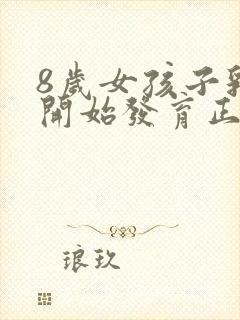 8歲女孩子乳
開始發育正
琅玖